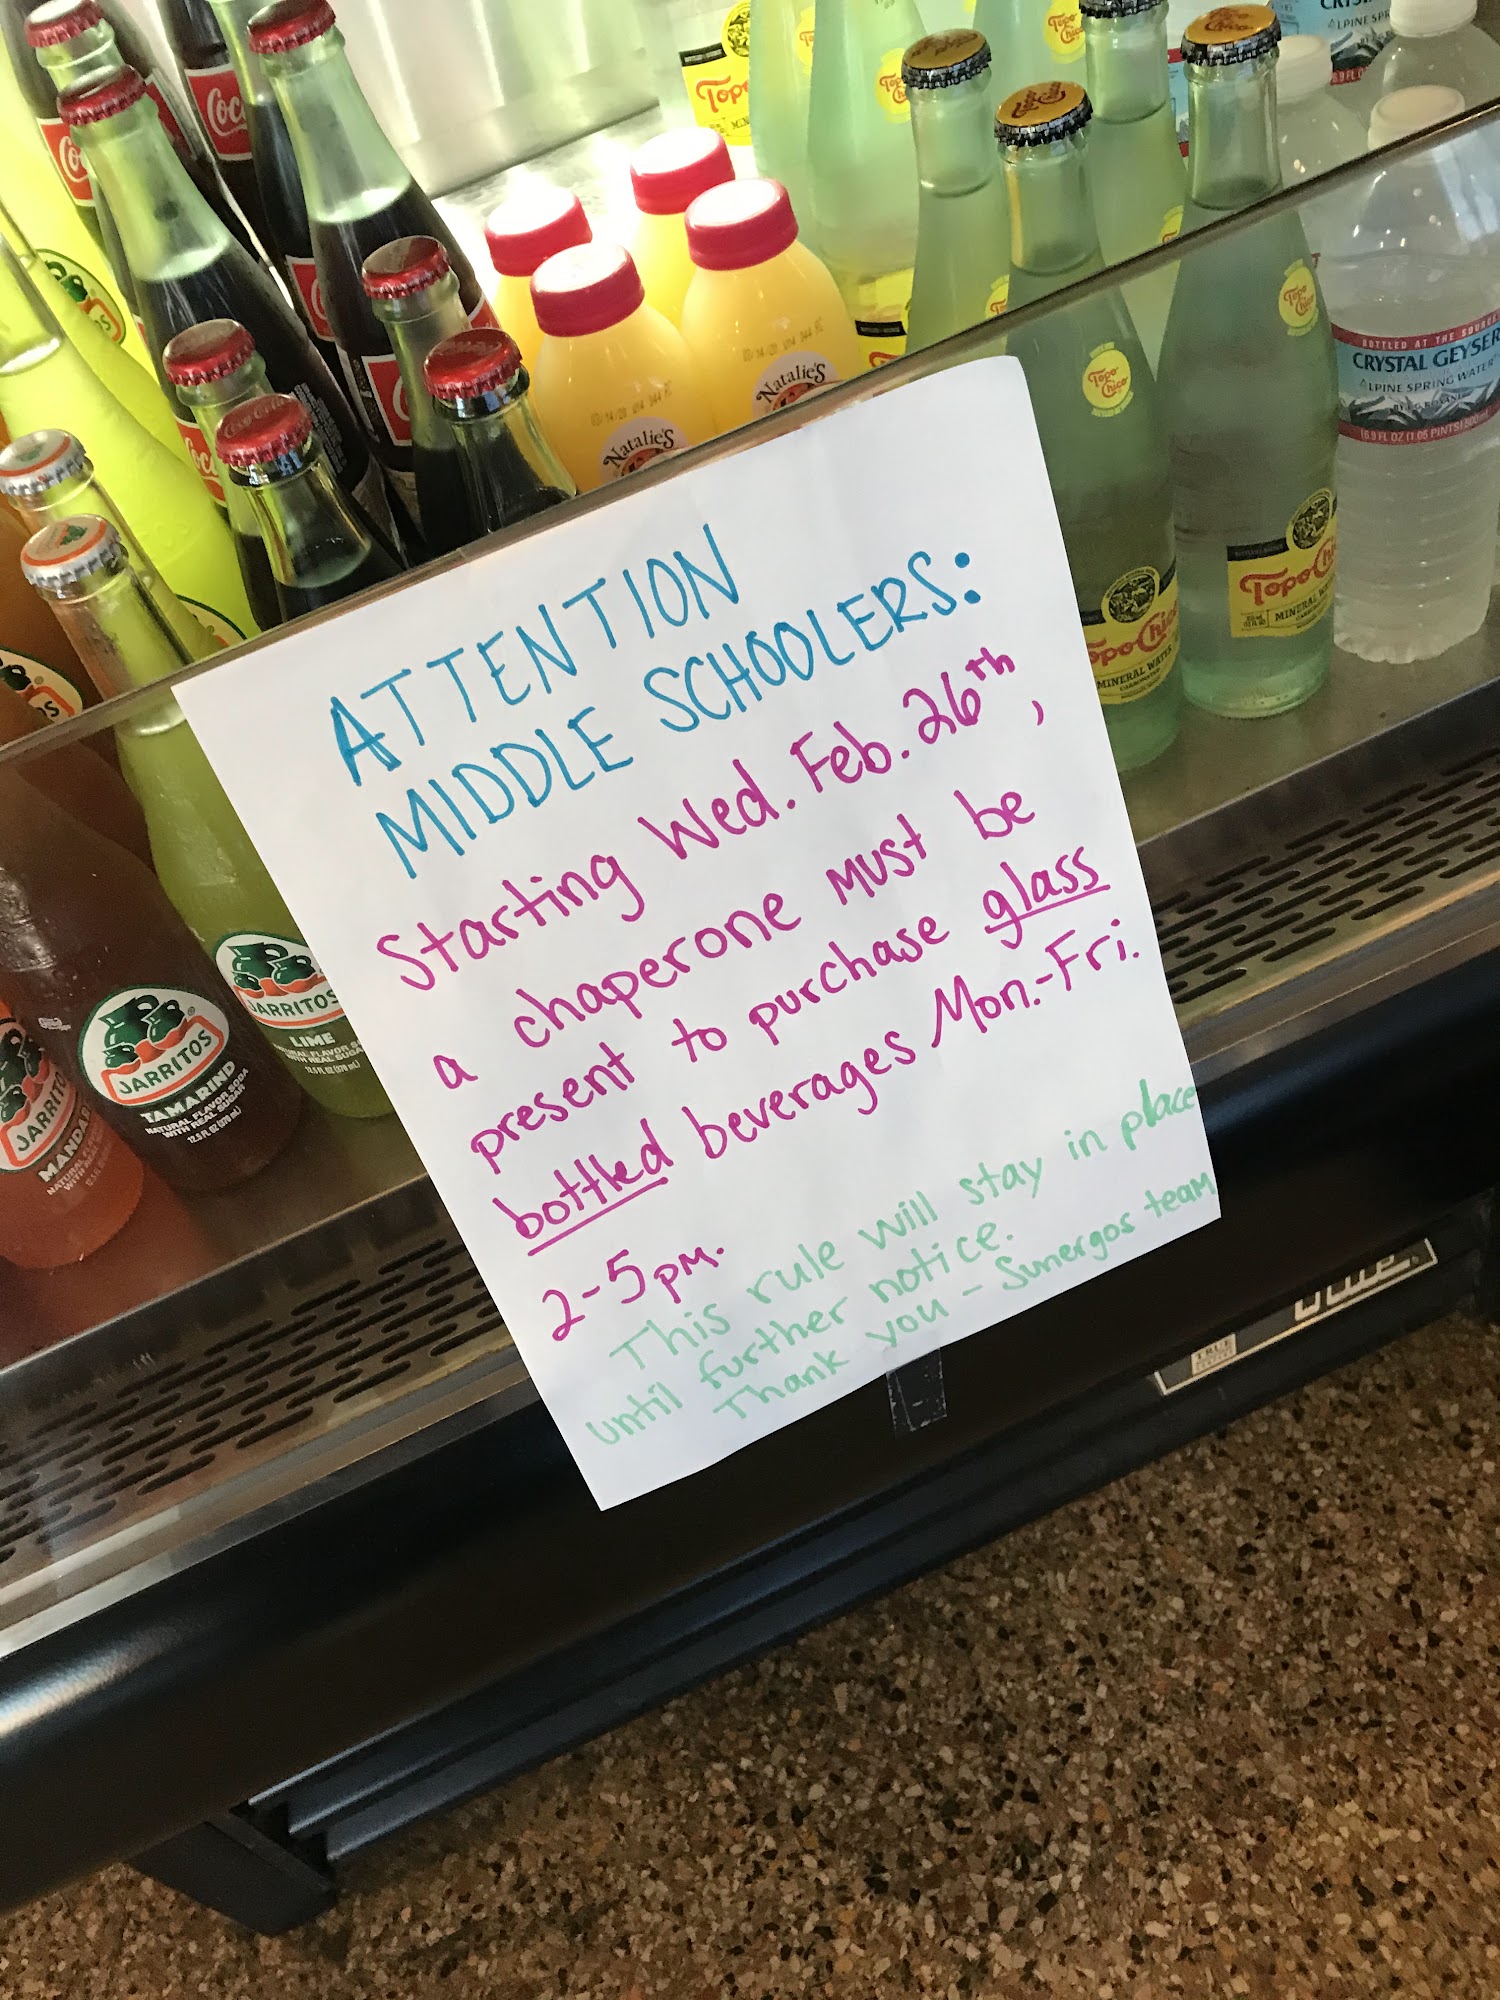 ATTENTION
MIDDLE SCHOOLERS:
Starting Wed. Feb. 26th,
a chaperone must be
present to purchase glass
bottled beverages Mon.-Fri.
2-5pm.
This rule will stay in place
until further notice.
Thank you - Sunergos team
JARRITOS
TAMARIND
NATURAL FLAVOR SODA
WITH REAL SUGAR
12.5 FL OZ (370 mL)
JARRITOS
LIME
12.5 FL OZ (370 mL)
Natalie's
Natalie's
Topo
Topo Chico
Topo Chico
Topo Chico
MINERAL WATER
Topo Chico
MINERAL WATER
BOTTLED AT THE SOURCE
CRYSTAL GEYSER
ALPINE SPRING WATER
16.9 FL OZ (1.05 PINTS) 500mL
TRUE